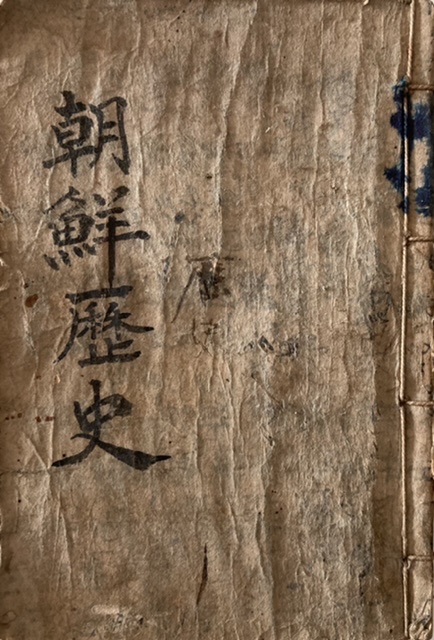 朝鮮歷史
歷